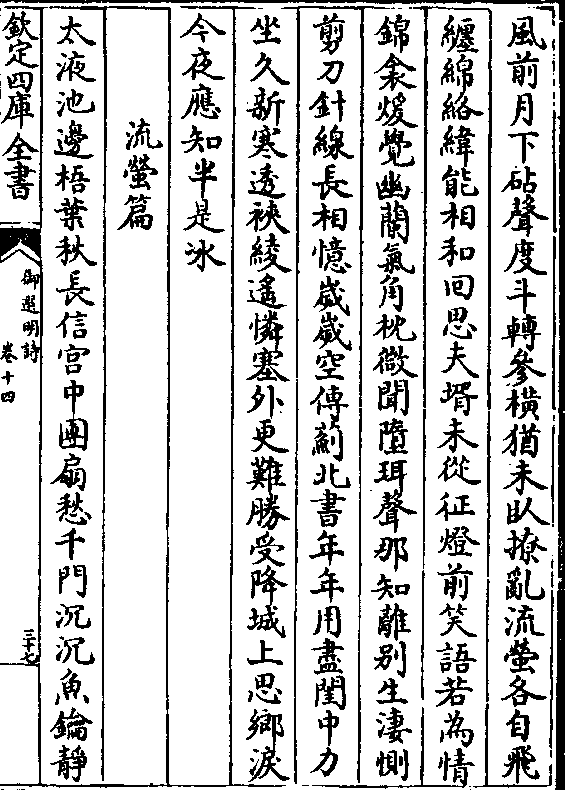 風前月下砧聲度斗轉參橫猶未臥撩亂流螢各自飛
纏綿絡緯能相和回思夫壻未從征燈前笑語若為情
錦衾煖覺幽蘭氣角枕微聞墮珥聲那知離别生淒惻
剪刀針線長相憶歲歲空傳薊北書年年用盡閨中力
坐久新寒透裌綾遙憐塞外更難勝受降城上思鄉淚
今夜應知半是冰
流螢篇
太液池邊梧葉秋長信宫中團扇愁千門沉沉魚鑰靜
欽定四庫全書
御選明詩
卷十四
三十七